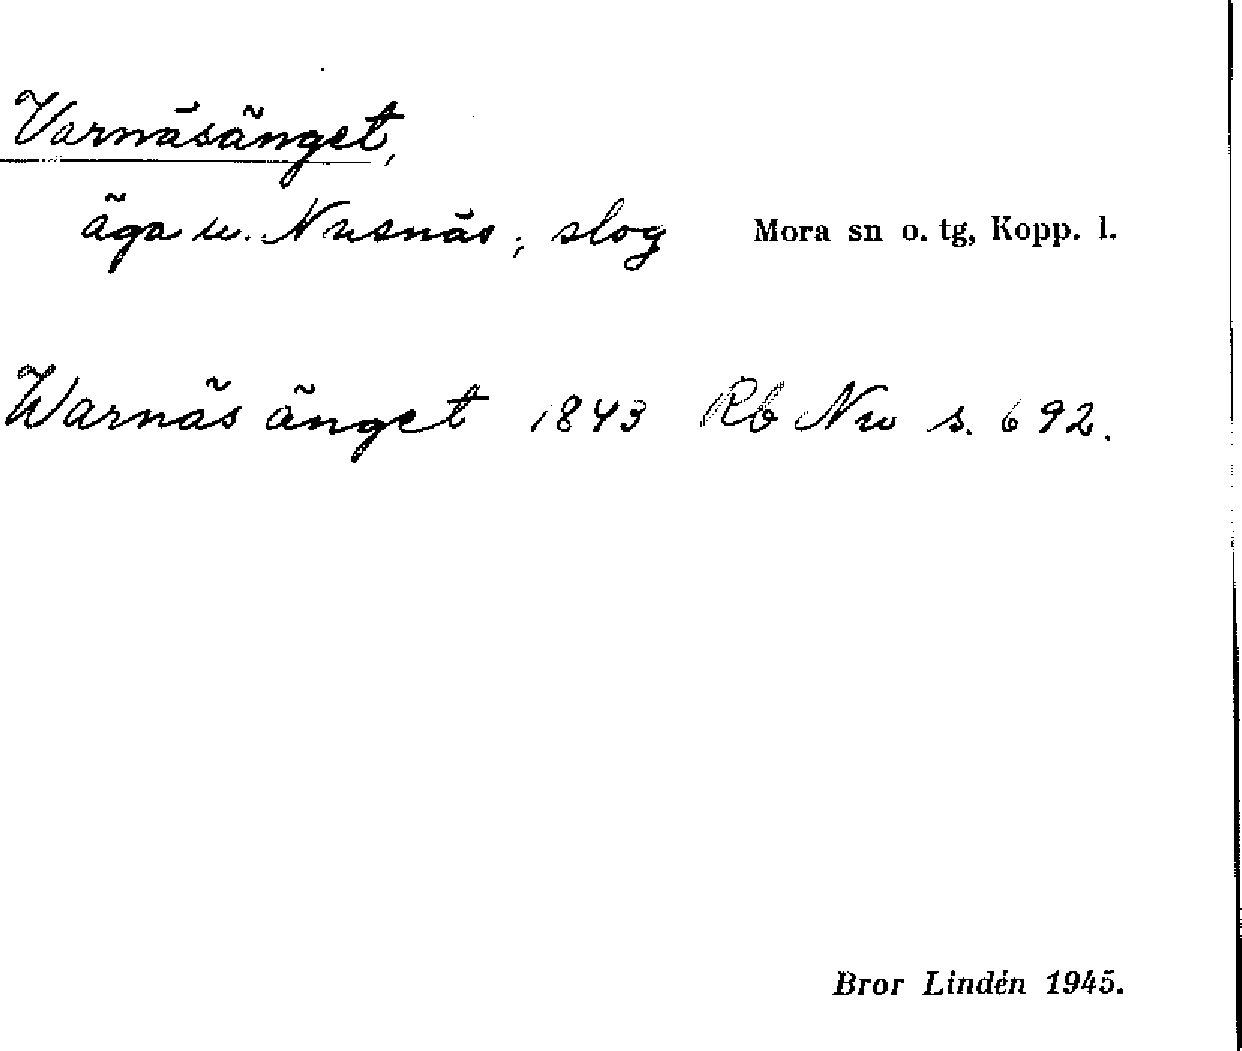 Varnäsänget,
äga u. Nusnäs; slog Mora sn o. tg, Kopp. l.
Warnäs änget 1843 Rb Nw s. 692.
Bror Lindén 1945.